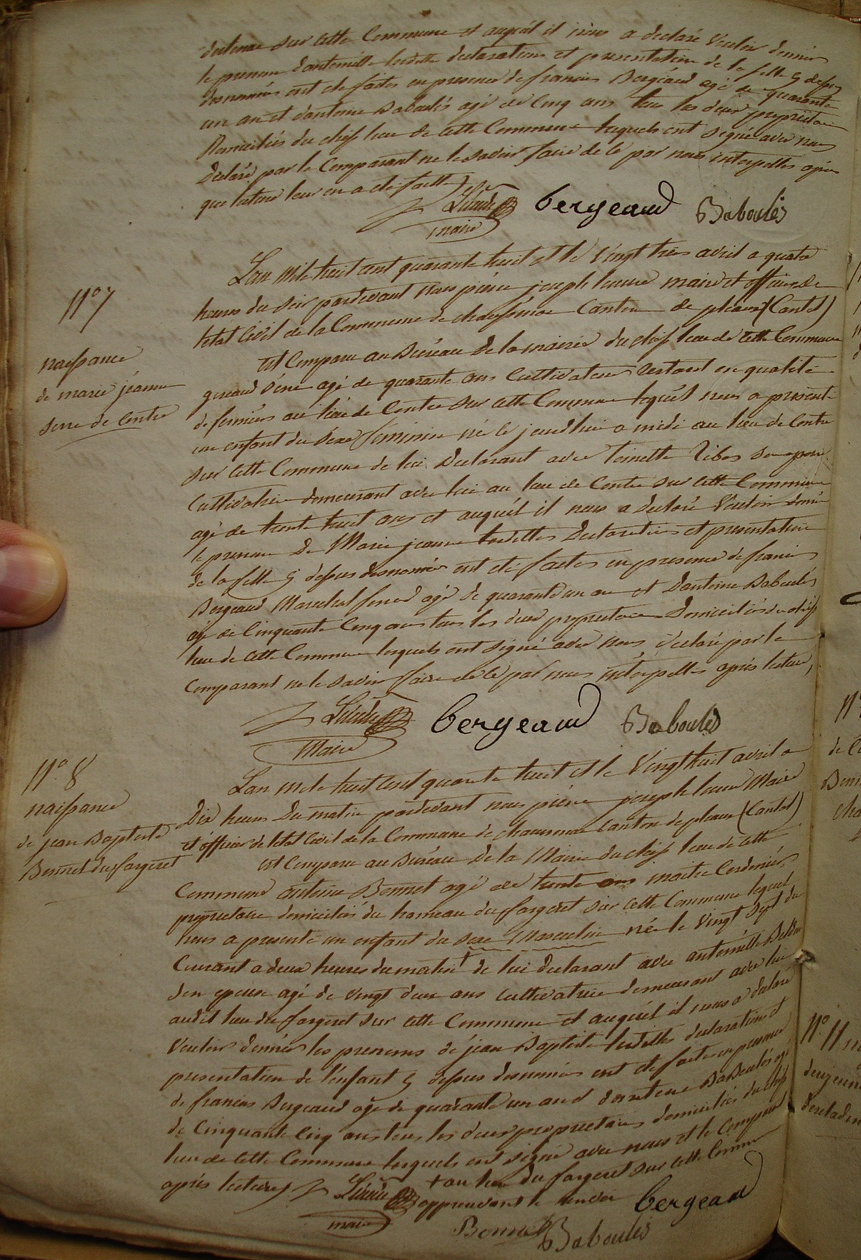 demeure sur cette Commune et auquel il nous a declaré Vouloir donner
le prenom d'antoinette lesdittes declarations et presentation de la fille çy depuis
denommé ont eté faites en presence de francois Bergeaud agé de quarante
un an et d'antoine Baboulés agé de Cinq ans tous les deux proprietaires
Domiciliés du chef lieu de cette Commune lesquels ont signé avec nous
declaré par le Comparant ne le savoir faire de ce par nous interpellés après
que lecture leur en a eté faitte
bergeaud Baboulès
maire
Lan mil huit cent quarante huit et le Vingt trois avril a quatre
heures du soir pardevant nous pierre joseph maire et officier de
letat Civil de la Commune de Canton de pleaux (Cantal)
N° 7
naissance
de marie jeanne
serre de Contre
est Comparu au Bureau de la mairie du chef lieu de cette Commune
geraud Serre agé de quarante ans Cultivateur restant en qualité
de fermier au lieu de Contre sur cette Commune lequel nous a presenté
un enfant du sexe feminin né ce jourdhui a midi au lieu de Contre
sur cette Commune de lui Declarant avec Toinette Ribes son epouse
Cultivatrice demeurant avec lui au lieu de Contre sur cette Commune
agé de trente huit ans et auquel il nous a declaré Vouloir donner
le prenom De Marie jeanne lesdittes Declarations et presentation
de la fille çy depuis denommé ont eté faites en presence de francois
Bergeaud Marechal ferrand agé de quarante un an et Dantoine Baboulés
agé de Cinquante Cinq ans tous les deux proprietaires Domiciliés du chef
lieu de cette Commune lesquels ont signé avec nous declaré par le
Comparant ne le savoir faire de ce par nous interpellés après lecture
bergeaud Baboulès
Maire
N° 8
naissance
de jean Baptiste
Bonnet du fargeret
Lan mil huit cent quarante huit et le Vingt huit avril a
Dix heures Du matin pardevant nous pierre joseph Maire
et officier de letat Civil de la Commune de Canton de pleaux (Cantal)
est Comparu au Bureau de la Mairie du chef lieu de cette
Commune antoine Bonnet agé de trente ans maitre Cordonnier
proprietaire domicilié du hameau du fargeret sur cette Commune lequel
nous a presenté un enfant du sexe Masculin né le Vingt Sept du
Courant a deux heures du matin de lui declarant avec antoinette
son epouse agé de vingt deux ans cultivatrice demeurant avec lui
audit lieu du fargeret sur cette Commune et auquel il nous a declaré
Vouloir donner les prenoms de jean Baptiste lesdittes declarations et
presentation de l'enfant çy depuis denommé ont eté faite en presence
de francois Bergeaud agé de quarante un an et dantoine Baboulés agé
de Cinquante Cinq ans tous les deux proprietaires domiciliés du chef
lieu de cette Commune lesquels ont signé avec nous et le Comparant
après lecture + au lieu du fargeret sur cette Commune
maire approuvant le renvoi bergeaud
Bonnet Baboulès
N° 11